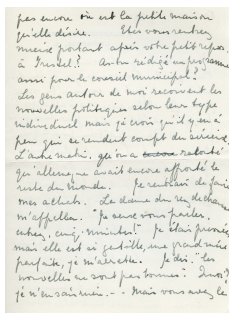 pas encore où est la petite maison
qu'elle désire. Êtes vous rentrez
mieux portant après votre petit repos
à ? As-tu rédigé un programme
aussi pour le conseil municipal?
Les gens autour de moi reçoivent les
nouvelles politiques selon leur type
individuel mais je crois qu'il y en a
peu qui se rendent compte du sérieux.
L'autre matin, on a encore raconté
qu'allemagne avait encore affronté le
reste du monde. Je rentrais de faire
mes achats. La dame du rez de chaussée
m'appella. "Je veux vous parler,
entrez, cinq minutes!" J'étais pressée
mais elle est si gentille, une grand mère
parfaite, je m'arrête. Je dis, "les
nouvelles ne sont pas bonnes". "Quoi?
je n'en sais rien. - - Mais vous avez le